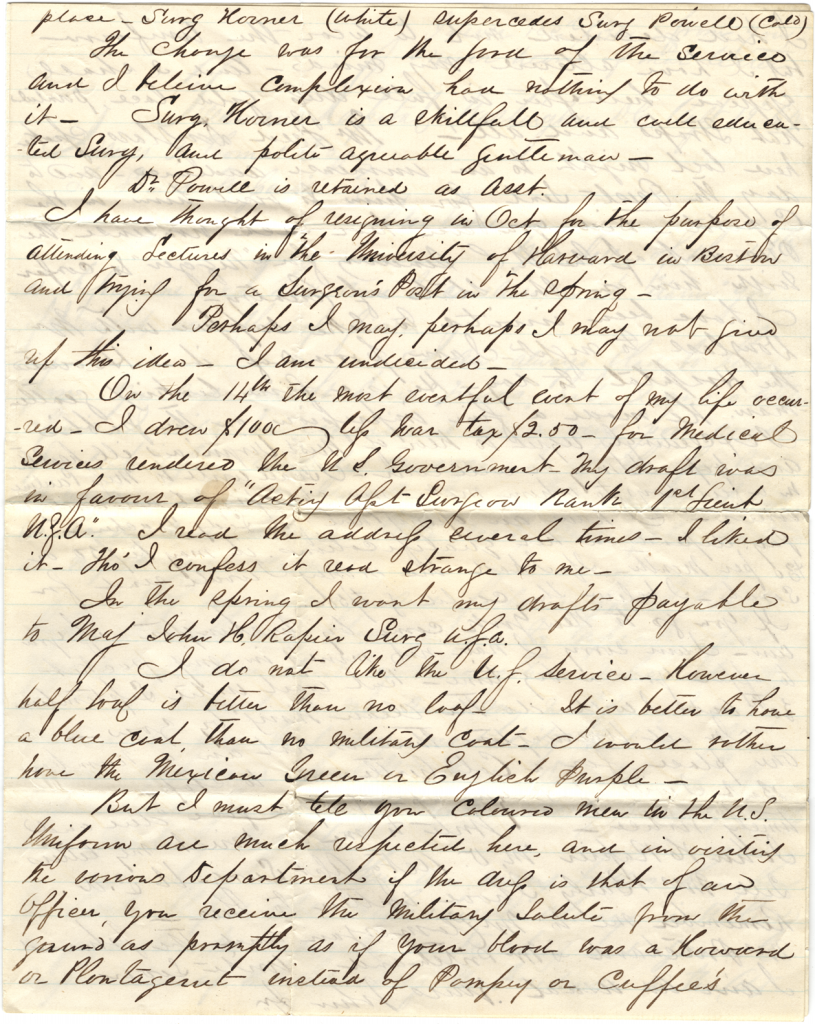 place - Surg Horner (White) supercedes Surg Powell (Cold)
The change was for the good of the service
and I beleive complexion had nothing to do with
it - Surg. Horner is a skillfull and well educa-
ted Surg, and polite agreeable gentleman -
Dr. Powell is retained as Asst.
I have thought of resigning in Oct for the purpose of
attending Lectures in the University of Harvard in Boston
and trying for a Surgeon's Post in the Spring -
Perhaps I may, perhaps I may not give
up this idea - I am undecided -
On the 14th the most eventful event of my life occur-
-red - I drew $100 less War tax $2.50 - for Medical
Services rendered the U.S. Government - My draft was
in favour of "Acting Asst Surgeon Rank 1st Lieut
U.S.A". I read the address several times - I liked
it - Tho' I confess it read strange to me -
In the spring I want my drafts payable
to Maj John H. Rapier Surg U.S.A.
I do not like the U.S. Service - However
half loaf is better than no loaf - It is better to have
a blue coat, than no military coat - I would rather
have the Mexican Green or English Purple -
But I must tele you coloured men in the U.S.
Uniform are much respected here, and in visiting
the various Department if the dress is that of an
Officer, you receive the Military Salute from the
guard as promptly as if your blood was a Howard
or Plantagenet instead of Pompey or Cuffee's